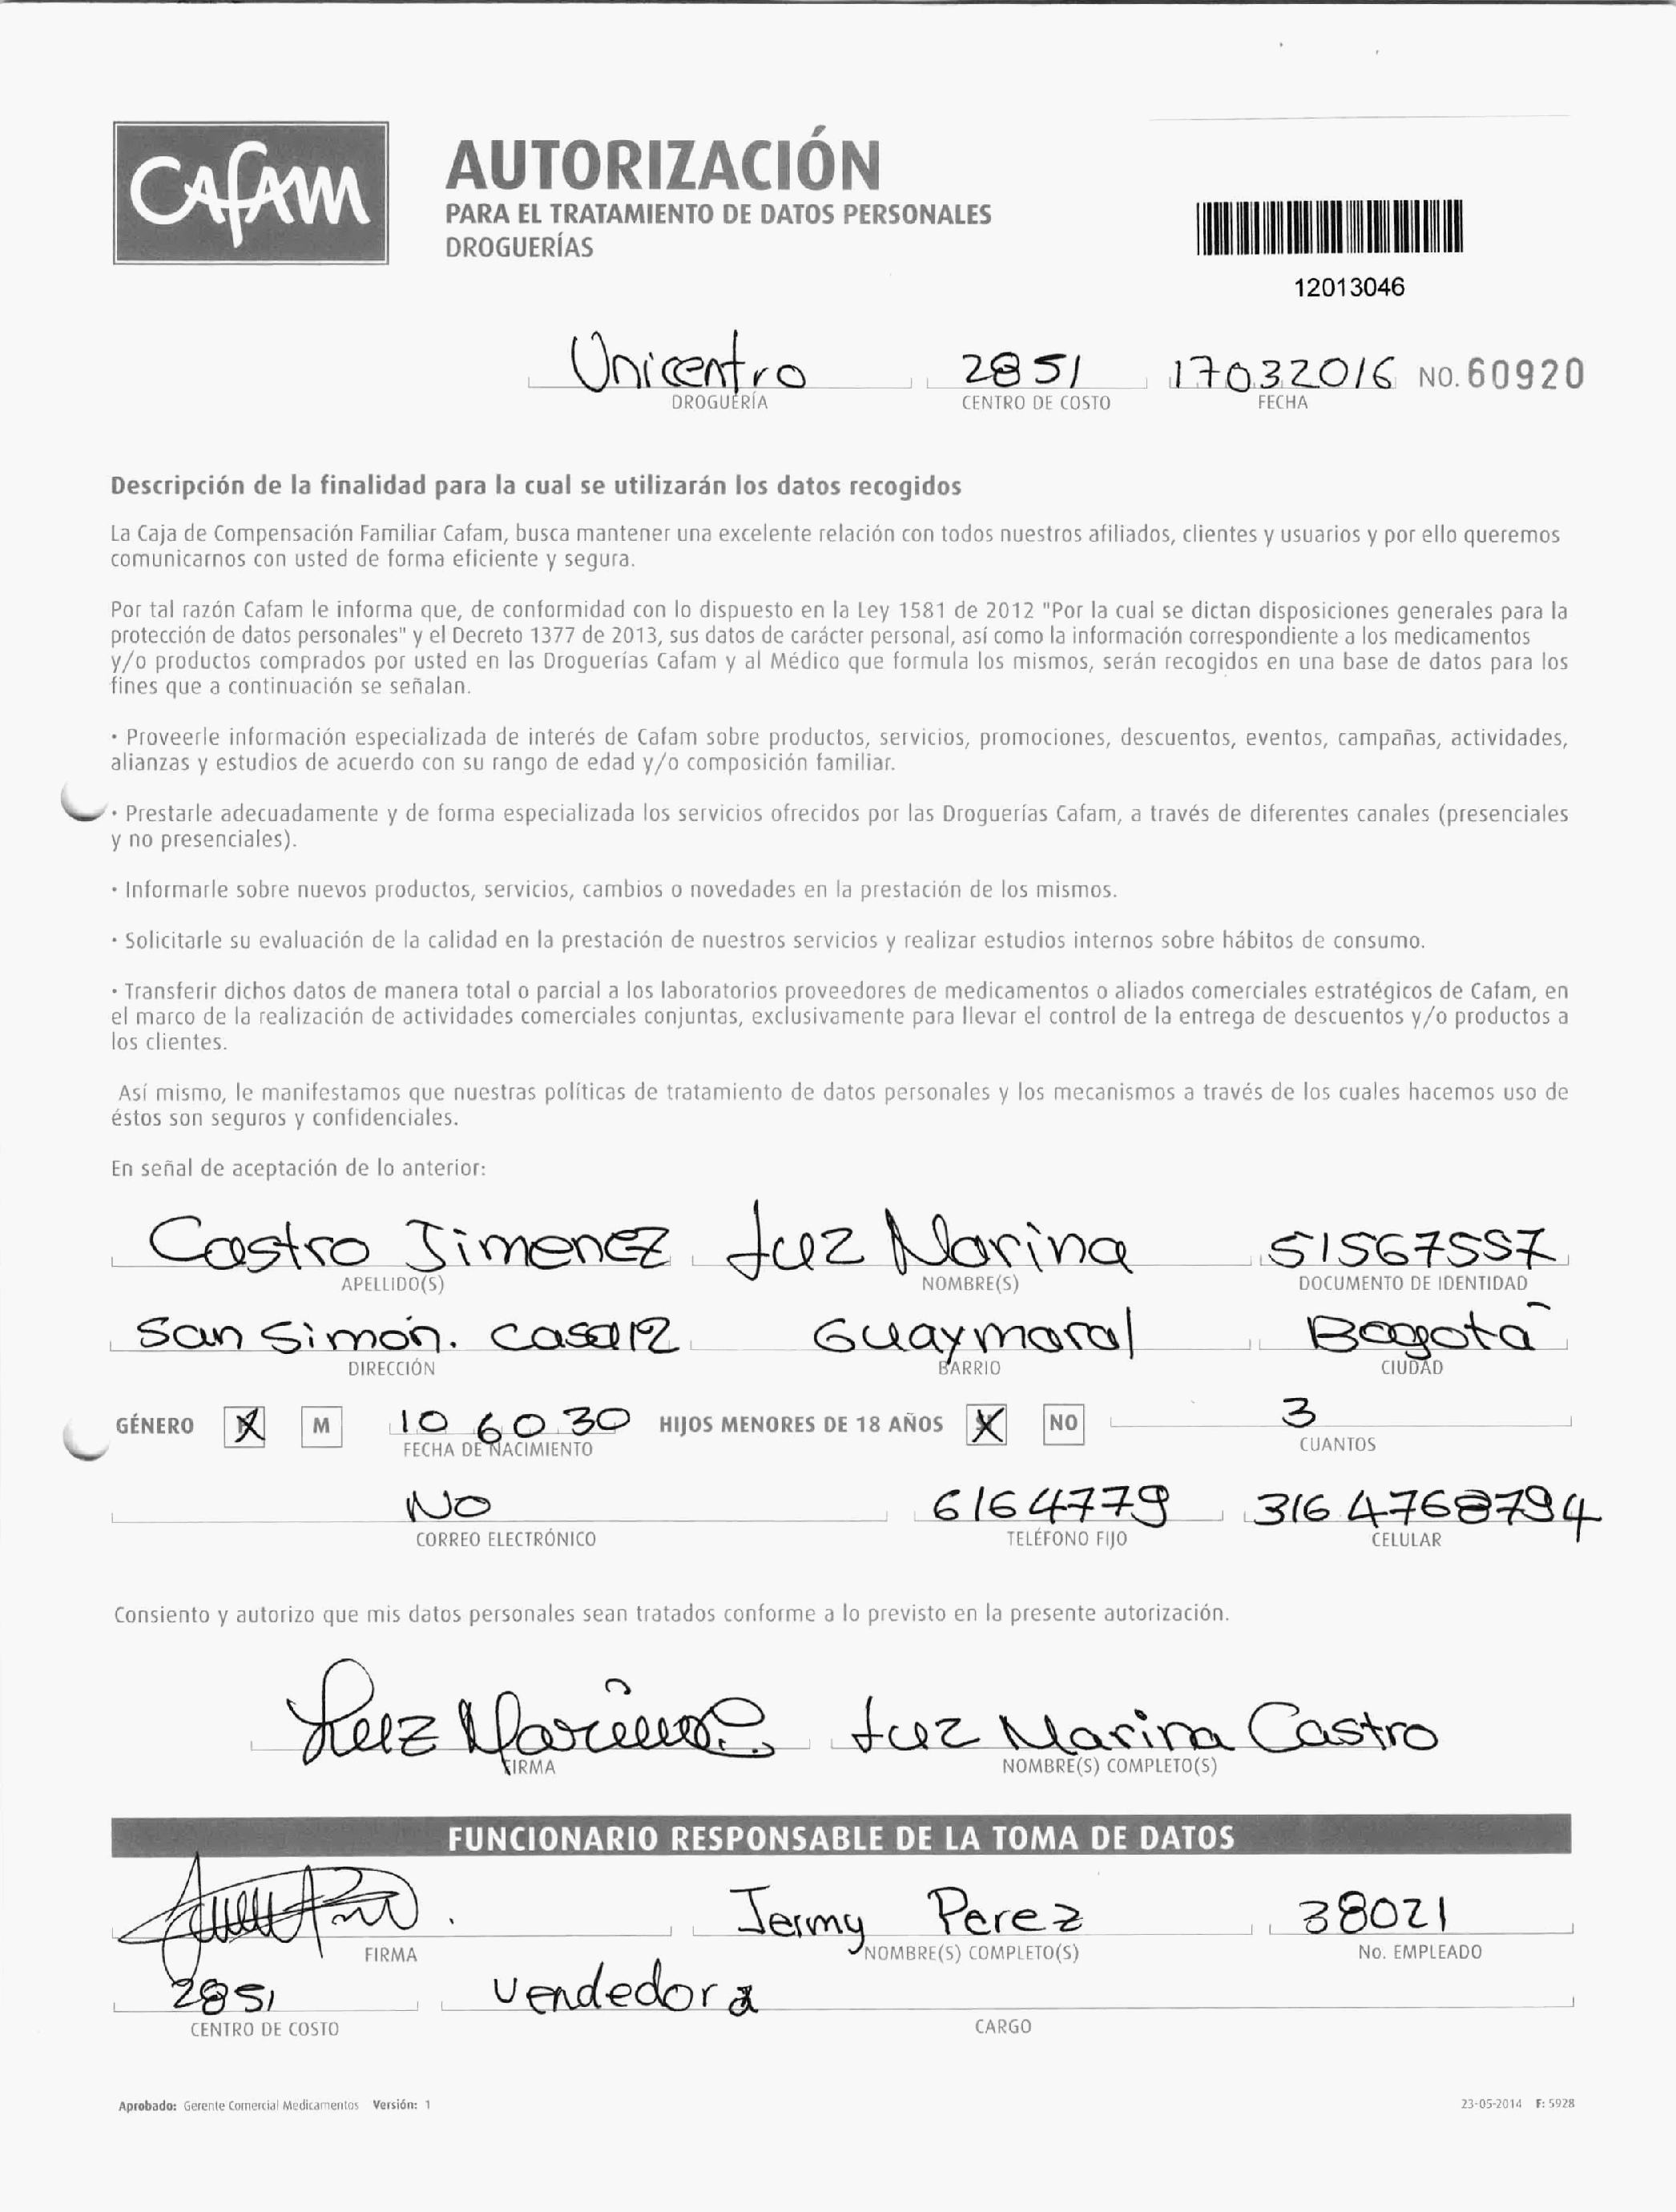 Cafam
AUTORIZACIÓN
PARA EL TRATAMIENTO DE DATOS PERSONALES
DROGUERÍAS
12013046
Unicentro 2851 17032016 NO. 60920
DROGUERÍA CENTRO DE COSTO FECHA
Descripción de la finalidad para la cual se utilizarán los datos recogidos
La Caja de Compensación Familiar Cafam, busca mantener una excelente relación con todos nuestros afiliados, clientes y usuarios y por ello queremos
comunicarnos con usted de forma eficiente y segura.
Por tal razón Cafam le informa que, de conformidad con lo dispuesto en la Ley 1581 de 2012 "Por la cual se dictan disposiciones generales para la
protección de datos personales" y el Decreto 1377 de 2013, sus datos de carácter personal, así como la información correspondiente a los medicamentos
y/o productos comprados por usted en las Droguerías Cafam y al Médico que formula los mismos, serán recogidos en una base de datos para los
fines que a continuación se señalan.
· Proveerle información especializada de interés de Cafam sobre productos, servicios, promociones, descuentos, eventos, campañas, actividades,
alianzas y estudios de acuerdo con su rango de edad y/o composición familiar.
· Prestarle adecuadamente y de forma especializada los servicios ofrecidos por las Droguerías Cafam, a través de diferentes canales (presenciales
y no presenciales).
· Informarle sobre nuevos productos, servicios, cambios o novedades en la prestación de los mismos.
· Solicitarle su evaluación de la calidad en la prestación de nuestros servicios y realizar estudios internos sobre hábitos de consumo.
· Transferir dichos datos de manera total o parcial a los laboratorios proveedores de medicamentos o aliados comerciales estratégicos de Cafam, en
el marco de la realización de actividades comerciales conjuntas, exclusivamente para llevar el control de la entrega de descuentos y/o productos a
los clientes.
Así mismo, le manifestamos que nuestras políticas de tratamiento de datos personales y los mecanismos a través de los cuales hacemos uso de
éstos son seguros y confidenciales.
En señal de aceptación de lo anterior:
Castro Jimenez Luz Marina 51567557
APELLIDO(S) NOMBRE(S) DOCUMENTO DE IDENTIDAD
San Simón. casa 12 Guaymaral Bogotá
DIRECCIÓN BARRIO CIUDAD
GÉNERO X M 10 60 30 HIJOS MENORES DE 18 AÑOS X NO 3
FECHA DE NACIMIENTO CUANTOS
NO 6164779 316 4768794
CORREO ELECTRÓNICO TELÉFONO FIJO CELULAR
Consiento y autorizo que mis datos personales sean tratados conforme a lo previsto en la presente autorización.
Luz Marina C. Luz Marina Castro
FIRMA NOMBRE(S) COMPLETO(S)
FUNCIONARIO RESPONSABLE DE LA TOMA DE DATOS
Jeimy Perez 38021
FIRMA NOMBRE(S) COMPLETO(S) No. EMPLEADO
2851 vendedora
CENTRO DE COSTO CARGO
Aprobado: Gerente Comercial Medicamentos Versión: 1 23-05-2014 F: 5928